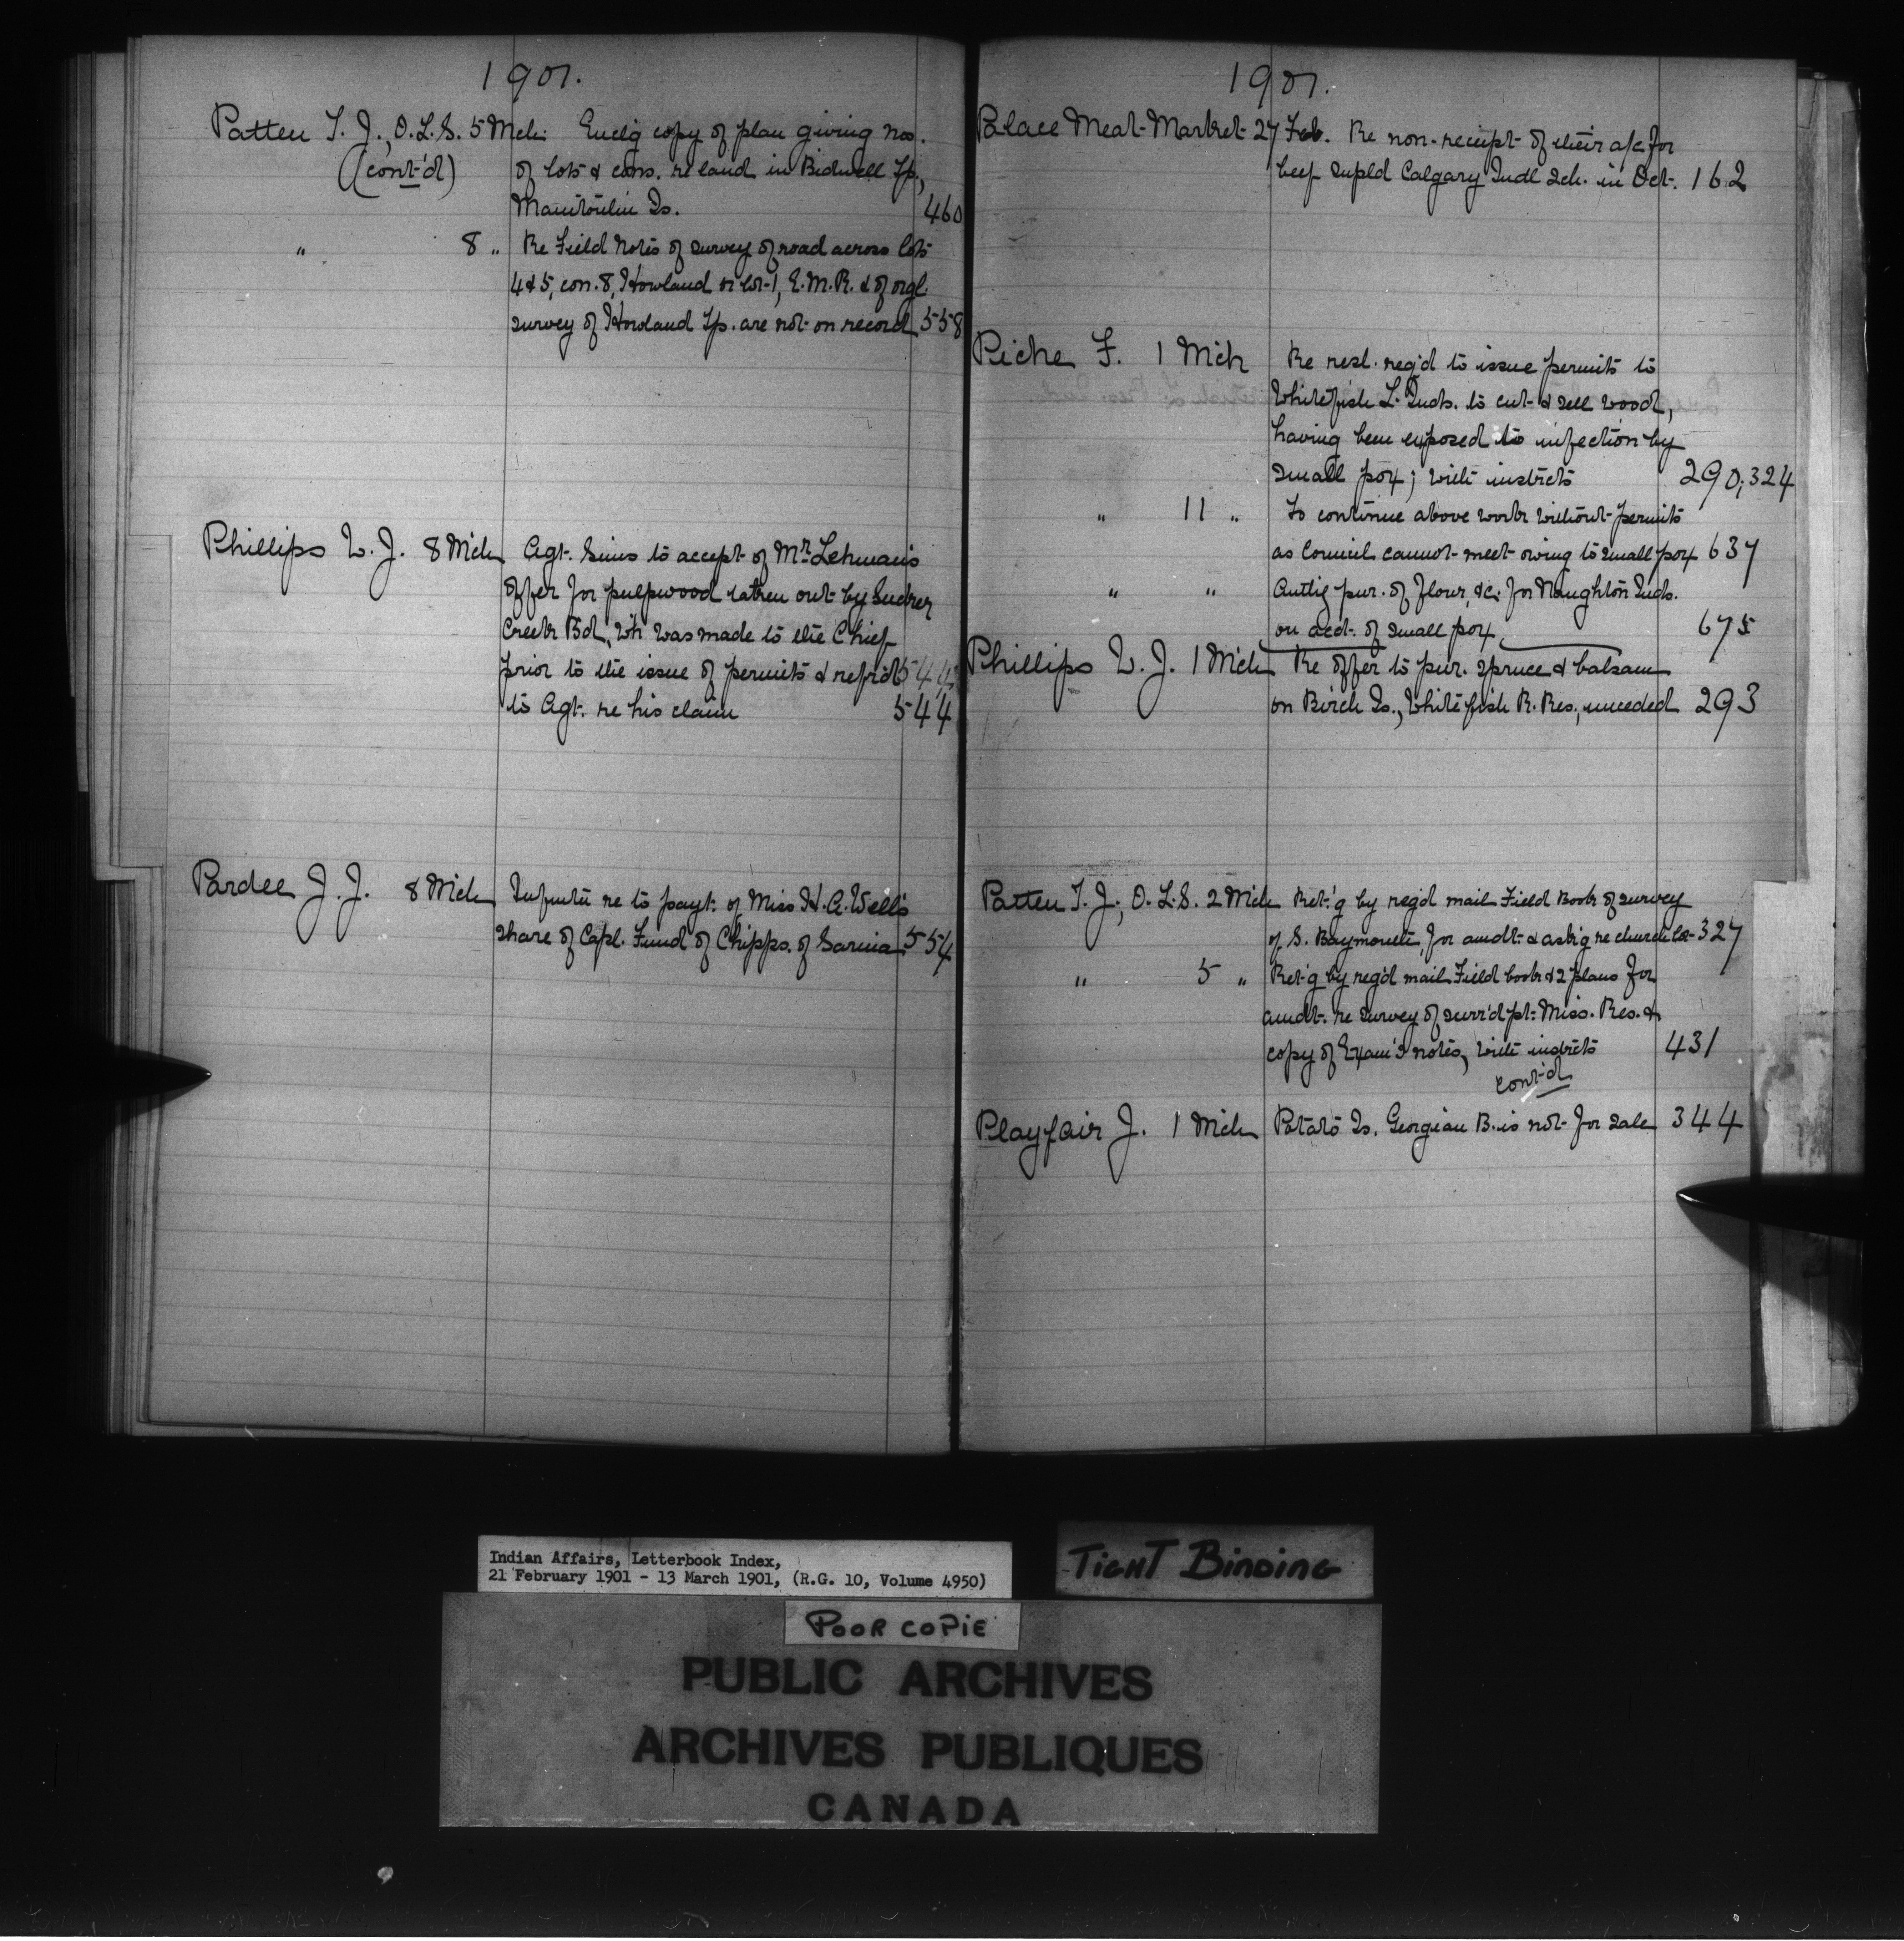 1901.
Patten T. J., O.L.S. 5 Mch. Encl'g copy of plan giving nos.
(cont'd) of lots & cons. re land in Bidwell Tp.,
Manitoulin Is. 460
" 8 " Re Field Notes of survey of road across lots
4 & 5, con. 8, Howland or lot 1, E.M.R. & of orgl.
survey of Howland Tp. are not on record 558
Phillips W. J. 8 Mch Agt. Sims to accept of Mr. Lehman's
offer for pulpwood taken out by Sucker
Creek Bd, wh was made to the Chief
prior to the issue of permits & refrd 544
to Agt. re his claim 544
Pardee J. J. 8 Mch Infmtn re to payt. of Miss H. A. Wells
share of Capl. Fund of Chipps. of Sarnia 554
1901.
Palace Meat Market 27 Feb. Re non-receipt of their a/c for
beef supld Calgary Indl Sch. in Oct. 162
Piche F. 1 Mch Re resl. req'd to issue permits to
Whitefish L. Inds. to cut & sell wood,
having been exposed to infection by
small pox; with instrcts 290, 324
" 11 " To continue above work without permits
as Council cannot meet owing to small pox 637
" " Authg pur. of flour, &c. for Naughton Inds.
on acct. of small pox 675
Phillips W. J. 1 Mch Re offer to pur. spruce & balsam
on Birch Is., Whitefish R. Res., unceded 293
Patten T. J., O.L.S. 2 Mch Ret'g by reg'd mail Field Book of survey
of S. Baymouth, for amdt. & ask'g re church lot 327
" 5 " Ret'g by reg'd mail Field book & 2 plans for
amdt. re survey of surr'd pt. Miss. Res. &
copy of Exam's notes, with instrcts 431
cont'd
Playfair J. 1 Mch Potato Is. Georgian B. is not for sale 344
Indian Affairs, Letterbook Index,
21 February 1901 - 13 March 1901, (R.G. 10, Volume 4950)
TIGHT BINDING
POOR COPIE
PUBLIC ARCHIVES
ARCHIVES PUBLIQUES
CANADA